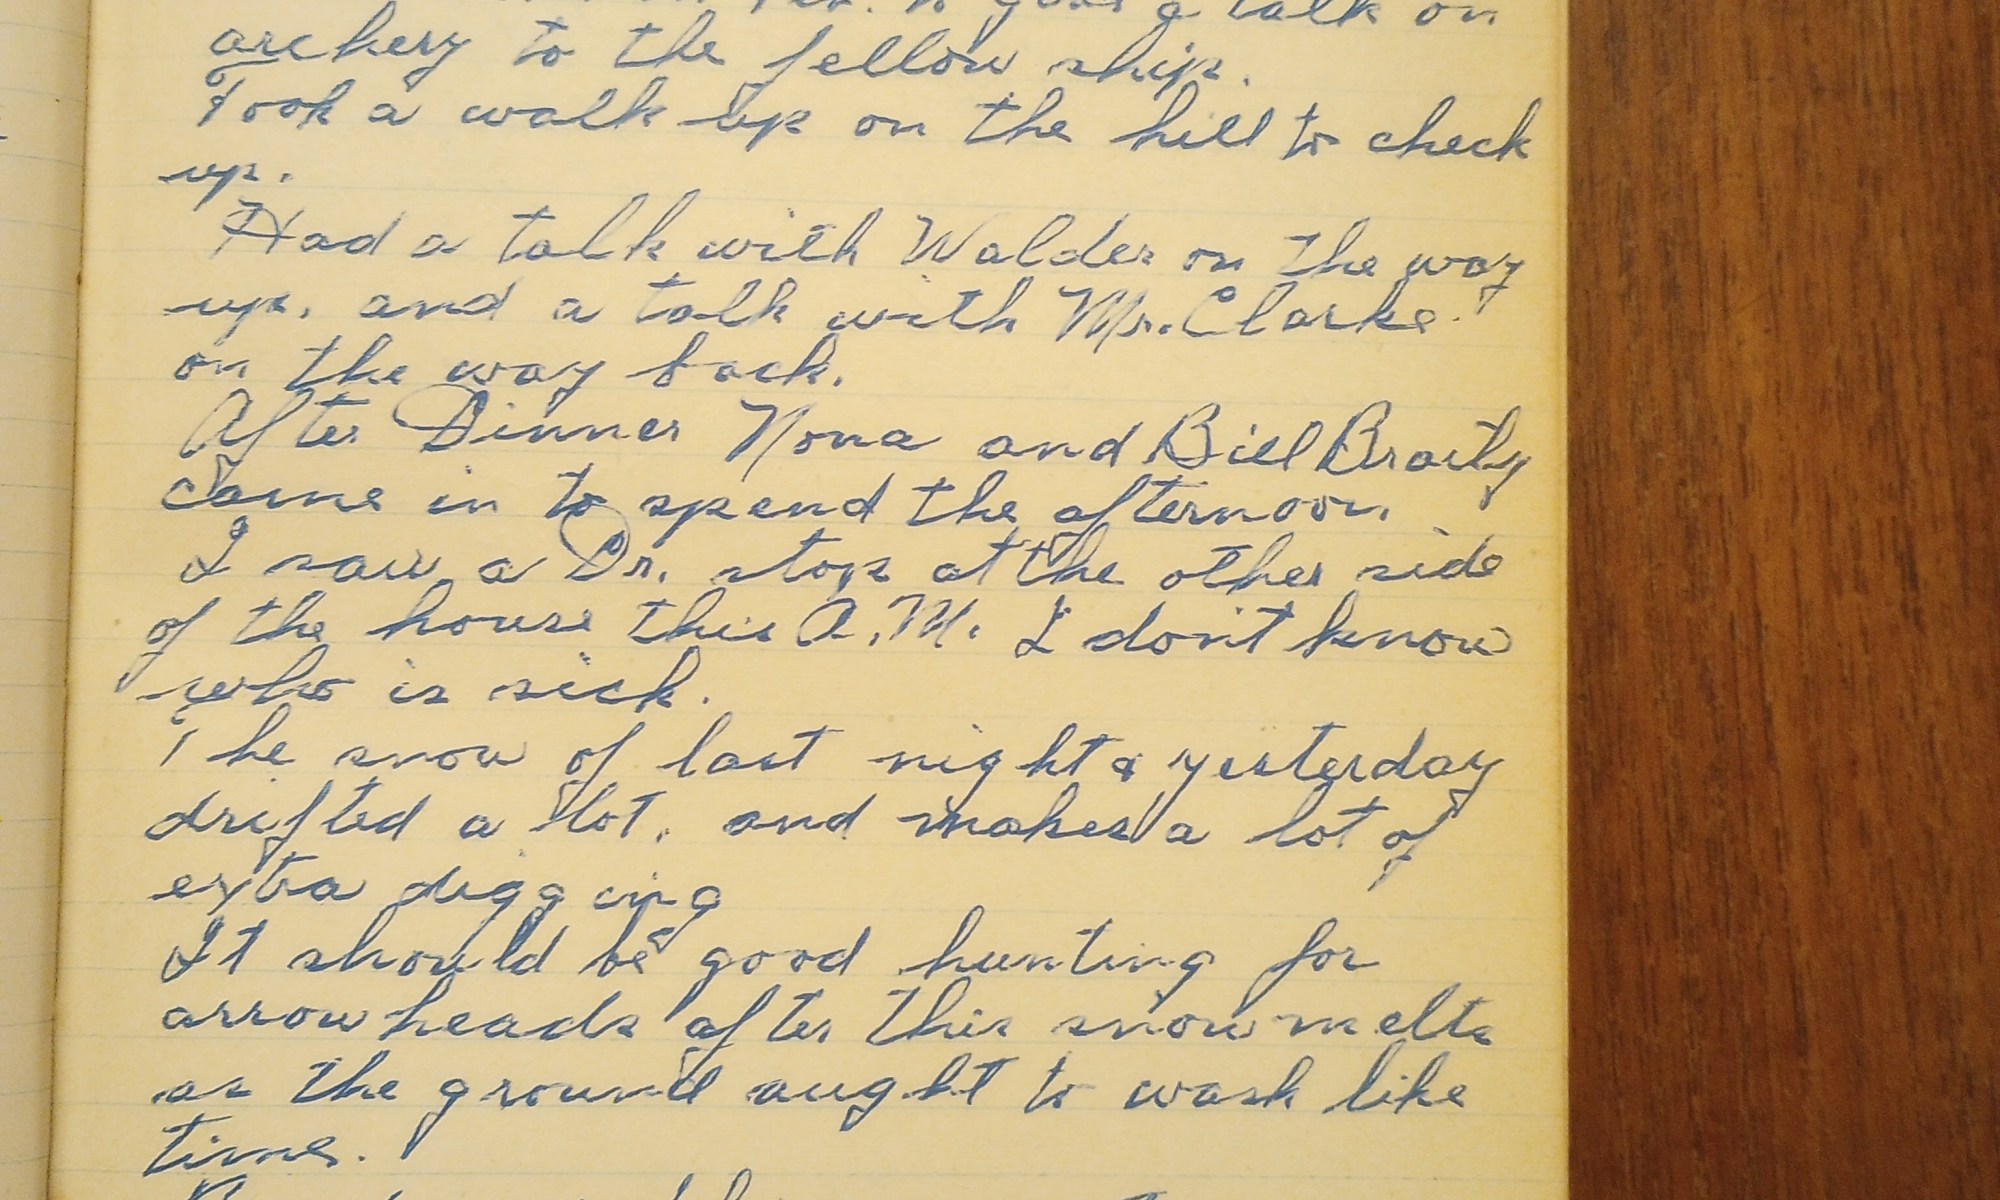 talk on
archery to the fellow ship.
Took a walk up on the hill to check
up.
Had a talk with Walder on the way
up, and a talk with Mr. Clarke
on the way back.
After Dinner Nona and Bill
came in to spend the afternoon.
I saw a Dr. stop at the other side
of the house this A.M. I don't know
who is sick.
The snow of last night & yesterday
drifted a lot, and makes a lot of
extra digging
It should be good hunting for
arrow heads after this snow melts
as the ground aught to wash like
time.